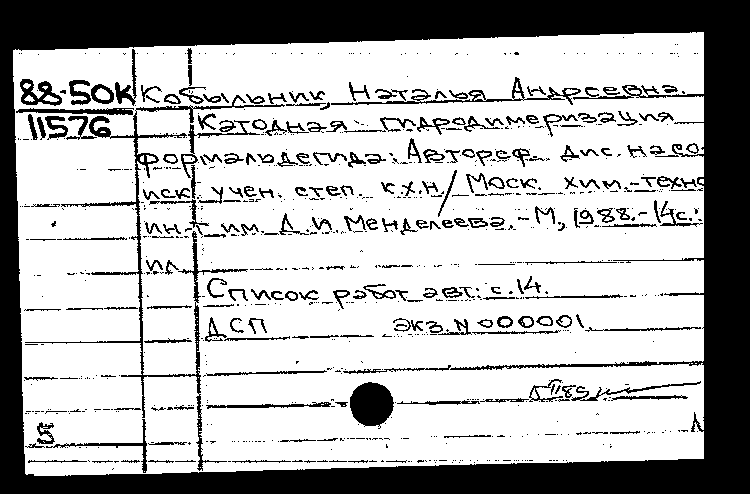 88-50К Кобыльник, Наталья Андреевна.
11576 Катодная гидродимеризация
формальдегида: Автореф. дис. на со-
иск. учен. степ. к.х.н. / Моск. хим.-техно
ин-т им. Д. И. Менделеева. - М, 1988. - 14с.:
ил.
Список работ авт.: с.14.
ДСП экз. N 000001.
5